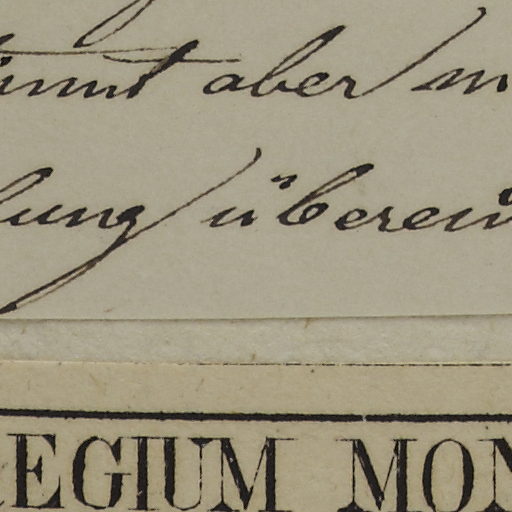 immt aber m
lung überein
REGIUM MON